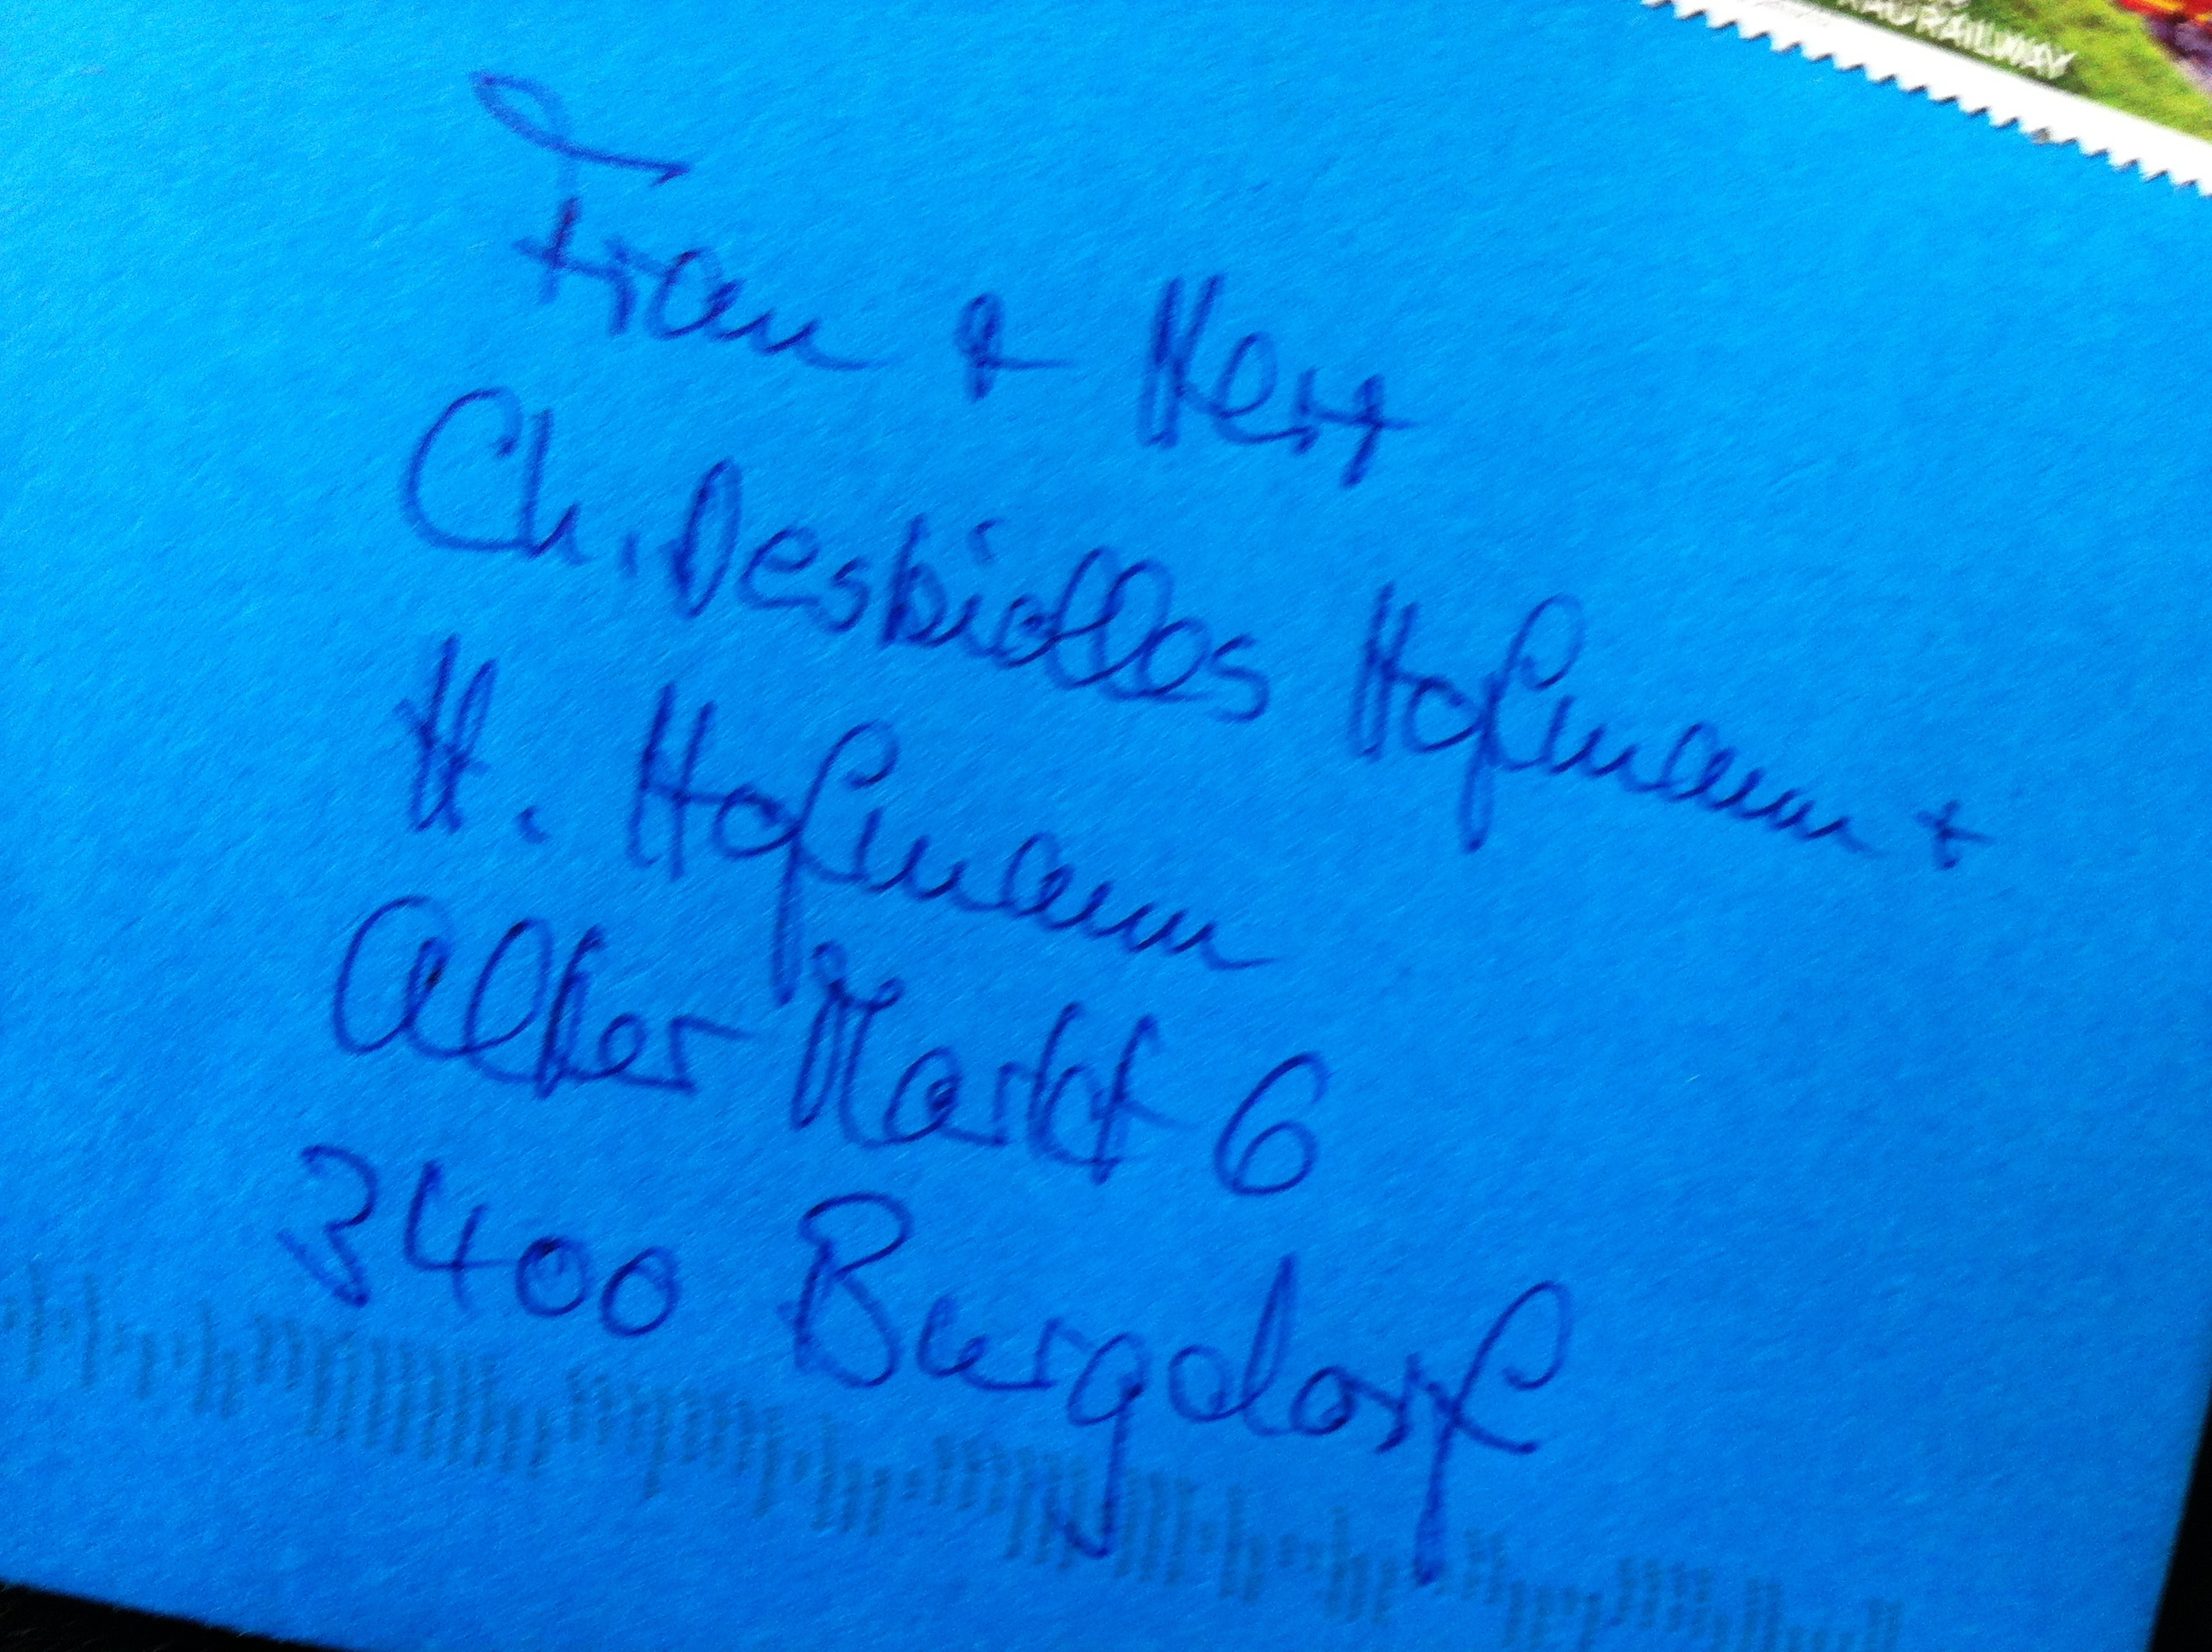 RAILWAY
Frau + Herr
Ch. Desbiolles Hofmann +
H. Hofmann
Alter Markt 6
3400 Burgdorf